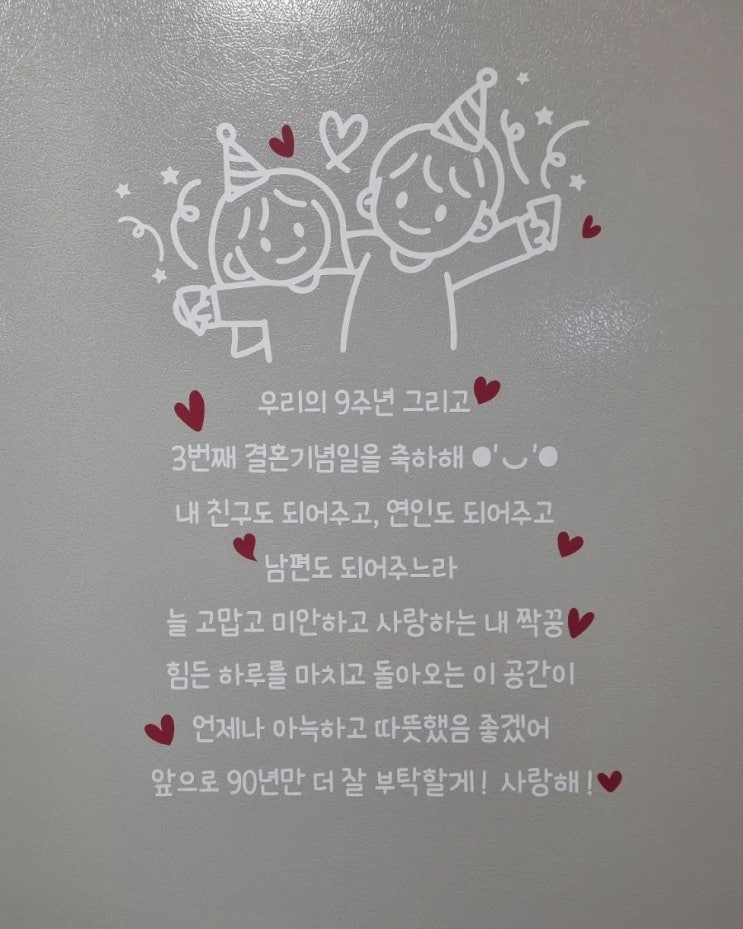 우리의 9주년 그리고
3번째 결혼기념일을 축하해 ●'◡'●
내 친구도 되어주고, 연인도 되어주고
남편도 되어주느라
늘 고맙고 미안하고 사랑하는 내 짝꿍
힘든 하루를 마치고 돌아오는 이 공간이
언제나 아늑하고 따뜻했음 좋겠어
앞으로 90년만 더 잘 부탁할게! 사랑해!